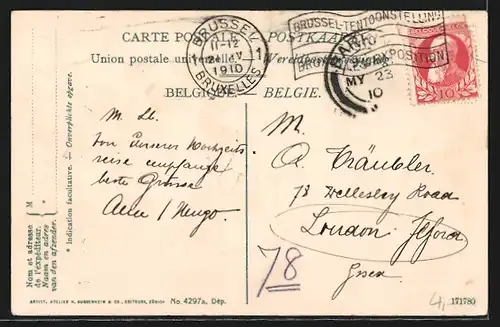 CARTE POSTALE POSTKAART
Union postale universelle. Wereldpostvereeniging.
BELGIQUE BELGIE.
BRUSSEL 1
11-12
1910
BRUXELLES
BRUSSEL-TENTOONSTELLING
EXPOSITION
MY 23
10
10
M. Lb.
Von unserer Hochzeits
reise empfange
beste Grüsse
Hugo
M.
A. Träubler.
78 Wellesley Road
London Ilford
Essex
78
4,-
M
Nom et adresse
de l'expéditeur.
Naam en adres
van den afzender.
* Indication facultative. — Overvlytige opgave.
ARTIST. ATELIER H. GUGGENHEIM & CO., EDITEURS, ZÜRICH
No. 4297a. Dép.
171780